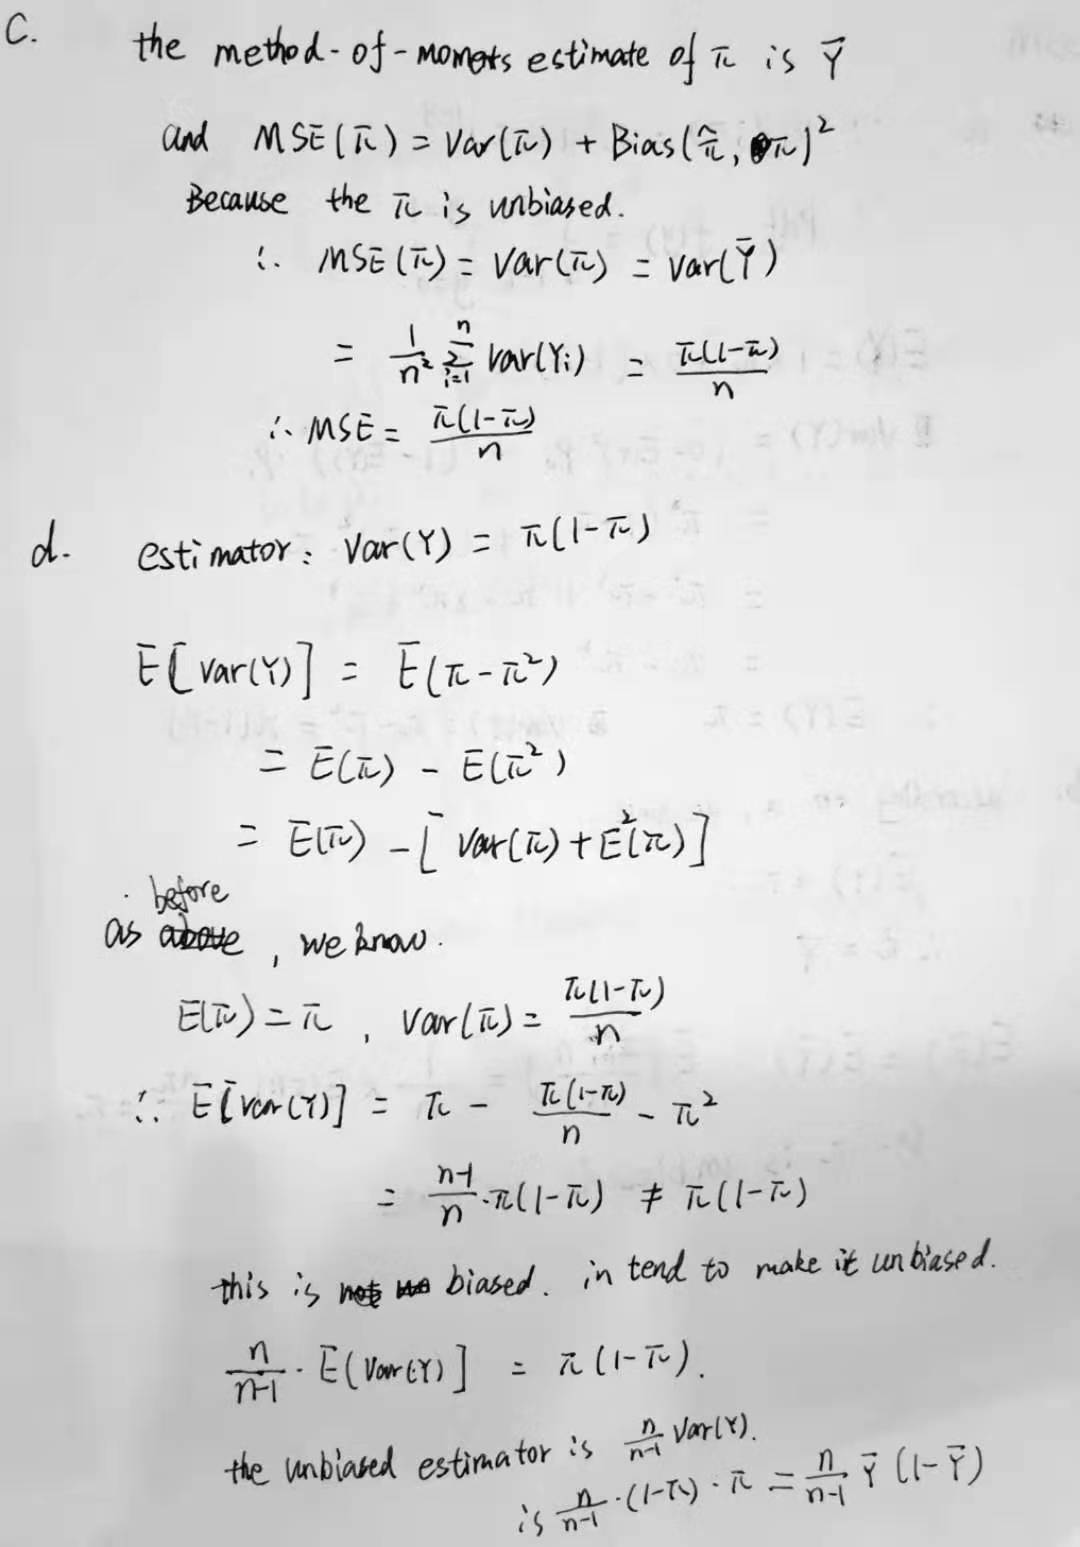 C. the method-of-moments estimate of π is Ȳ
and MSE(π) = Var(π) + Bias(π̂, π)²
Because the π is unbiased.
∴ MSE(π) = Var(π) = Var(Ȳ)
= 1/n² Σ_{i=1}^{n} Var(Yi) = π(1-π)/n
∴ MSE = π(1-π)/n
d. estimator: Var(Y) = π(1-π)
E[Var(Y)] = E(π-π²)
= E(π) - E(π²)
= E(π) - [Var(π) + E²(π)]
as before, we know.
E(π) = π, Var(π) = π(1-π)/n
∴ E[Var(Y)] = π - π(1-π)/n - π²
= n-1/n · π(1-π) ≠ π(1-π)
this is biased. in tend to make it unbiased.
n/n-1 · E[Var(Y)] = π(1-π).
the unbiased estimator is n/n-1 Var(Y).
is n/n-1 · (1-π) · π = n/n-1 Ȳ(1-Ȳ)